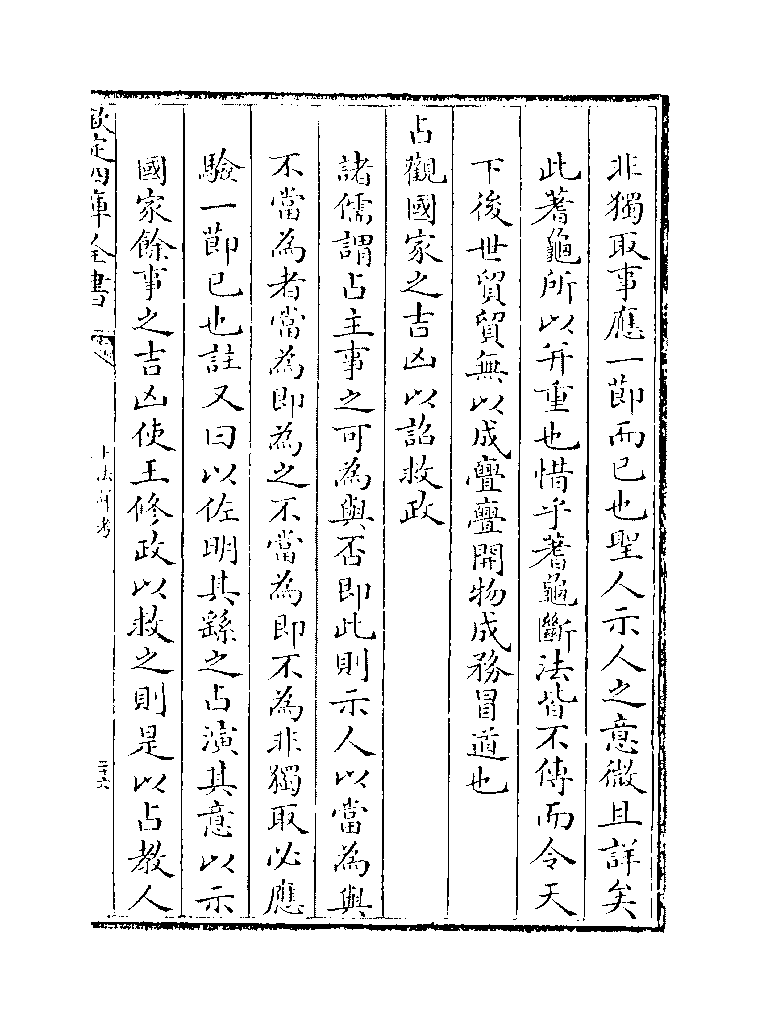 非獨取事應一節而已也聖人示人之意微且詳矣
此蓍龜所以并重也惜乎蓍龜斷法皆不傳而令天
下後世貿貿無以成亹亹開物成務冒道也
占觀國家之吉凶以詔救政
諸儒謂占主事之可為與否即此則示人以當為與
不當為者當為即為之不當為即不為非獨取必應
驗一節已也註又曰以佐明其繇之占演其意以示
國家餘事之吉凶使王修政以救之則是以占教人
欽定四庫全書
卜法詳考
二十六